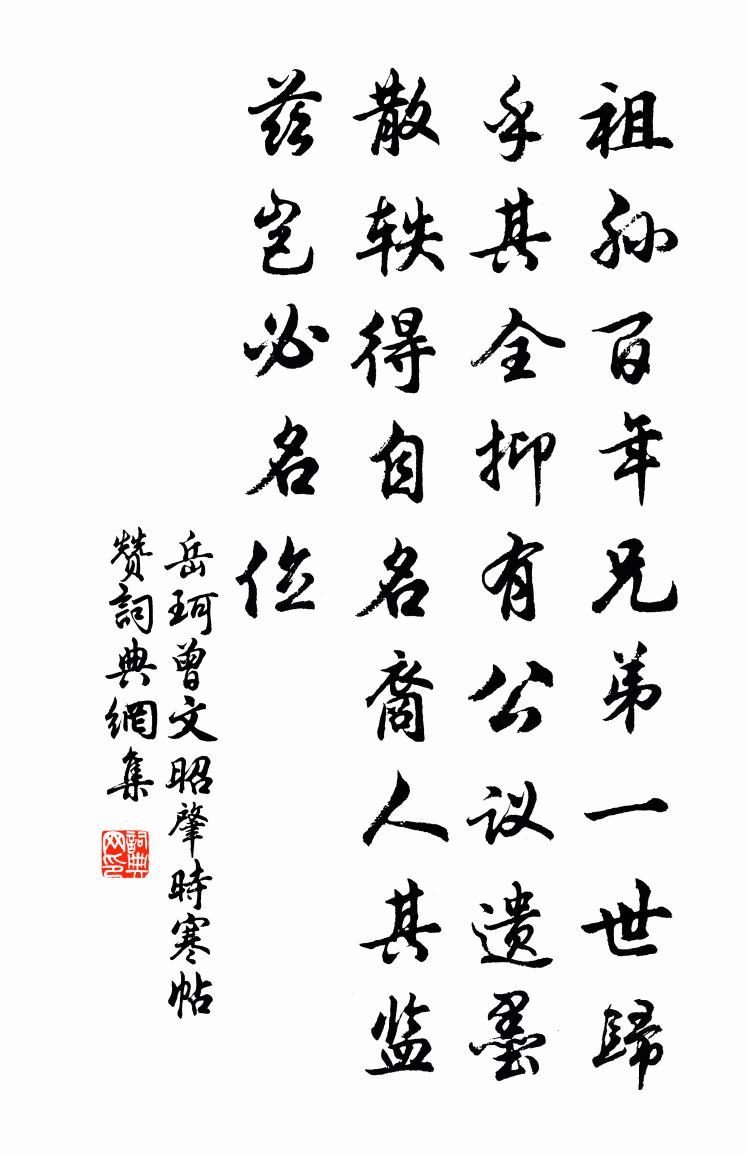 祖孙百年兄弟一世歸
乎其全抑有公议遗墨
散轶得自名裔人其监
兹岂必名位
岳珂曾文昭肇時寒帖
赞詞典網集
詞典网印